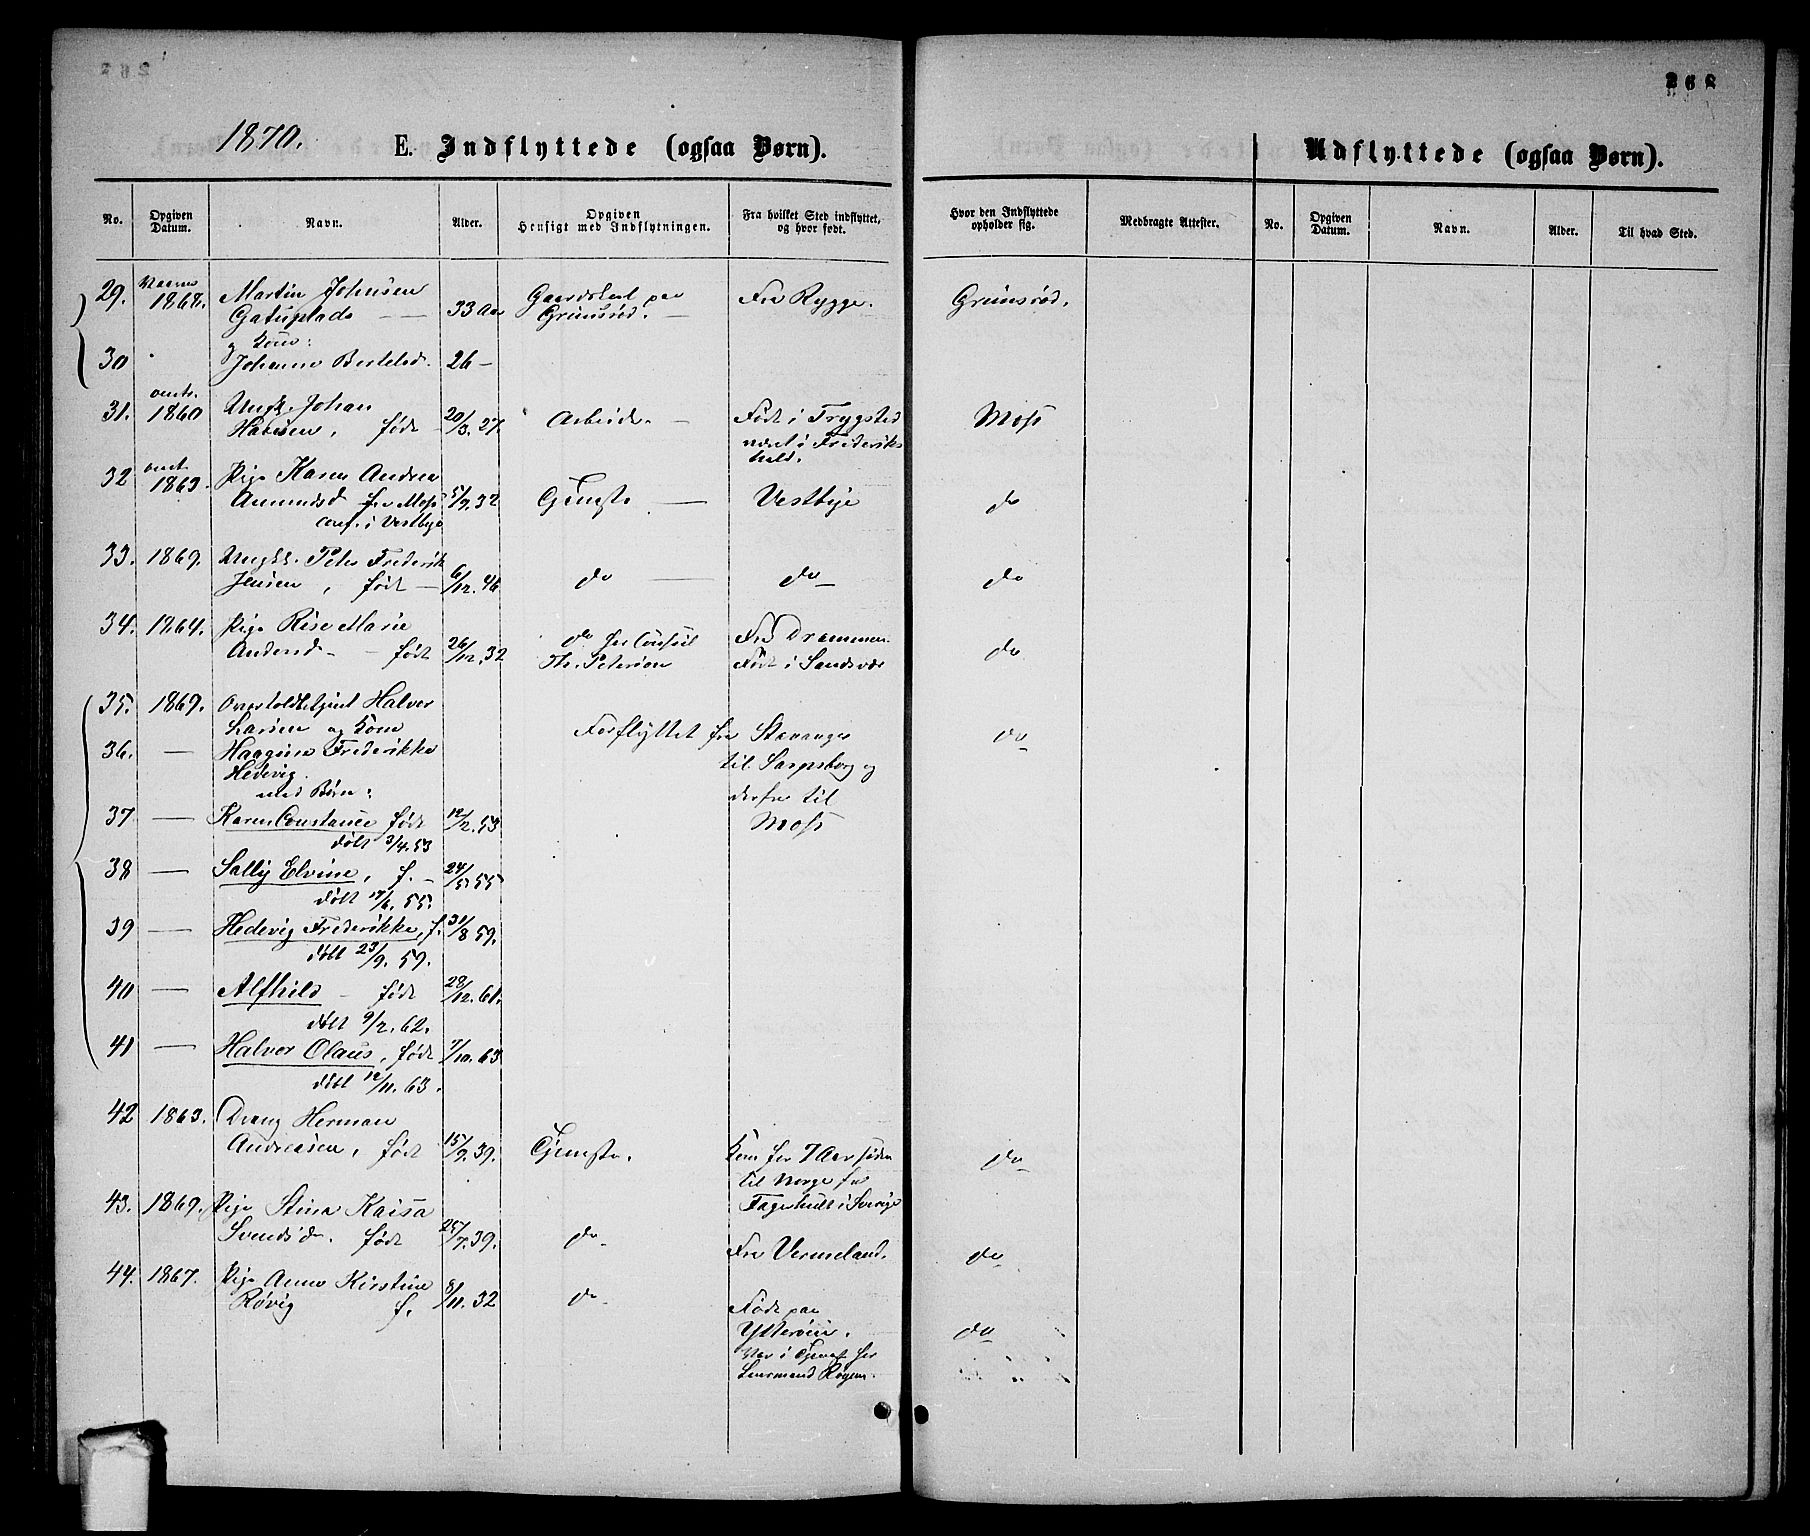 268
1870.
E. Indflyttede (ogsaa Børn).
Udflyttede (ogsaa Børn).
No.
Opgiven Datum.
Navn.
Alder.
Opgiven Hensigt med Indflytningen.
Fra hvilket Sted indflyttet, og hvor født.
Hvor den Indflyttede opholder sig.
Medbragte Attester.
No.
Opgiven Datum.
Navn.
Alder.
Til hvad Sted.
29. 1868. Martin Johnsen Gaardslet paa Fra Rygge. Grimsrød.
33 Aar Grimsrød. —
og Kone:
30 Johanne Bertelsd. 26 —
omtr.
31. 1860 Ungk. Johan
Hansen, født 20/3. 27. Arbeide. — Født i Trygstad Moss
været i Frederiks
hald.
omtr.
32 1863. Pige Karen Andrea
Amundsd fra Moss 5/9. 32 Tjeneste — Vestbye do
conf. i Vestbye
33. 1869. Ungk. Peter Frederik
Jensen, født — 6/12. 46 do — do — do
34. 1864. Pige Rise Marie
Andersd — født 26/12. 32 do hos Consul Fra Drammen. do
Th. Peterson Født i Sandsvær
35. 1869. Overtoldbetjent Halvor
Larsen og Kone Forflyttet fra Stavanger do
36. — Haagine Frederikke til Sarpsborg og
Hedevig.
med Børn: derfra til
37 — Karen Constance født 12/2. 53 Moss
døbt 3/4. 53
38 — Sally Elvine, f. — 24/5. 55
døbt 17/6. 55.
39 — Hedevig Frederikke, f. 31/8 59.
døbt 23/9. 59.
40 — Alfhild — født 28/12. 61.
døbt 9/2. 62.
41 — Halvor Olaus, født 7/10. 63
døbt 12/11. 63.
42 1863. Dreng Herman
Andreasen, født 15/9. 39. Tjeneste. Kom for 7 Aar siden do
til Norge fra
43. 1869. Pige Stina Kaisa Fagerhult i Sverige
Svendsd. født 25/7. 39. do Fra Vermeland. do
44. 1867. Pige Anne Kirstine
Røvig f. 8/11. 32 do Født paa
Ytterøen. do
Var i Tjeneste hos